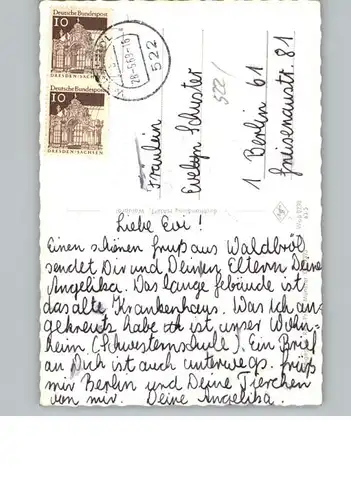 Deutsche Bundespost
10
DRESDEN-SACHSEN
Deutsche Bundespost
10
DRESDEN-SACHSEN
28.-5.69-16
522
522/
Fräulein
Evelyn Schuster
1 Berlin 61
Gneisenaustr. 81
Liebe Evi!
Einen schönen Gruß aus Waldbröl
sendet Dir und Deinen Eltern Deine
Angelika. Das lange Gebäude ist
das alte Krankenhaus. Was ich an-
gekreuzt habe ist unser Wohn-
heim (Schwesternschule). Ein Brief
an Dich ist auch unterwegs. Grüß
mir Berlin und Deine Tierchen
von mir. Deine Angelika.